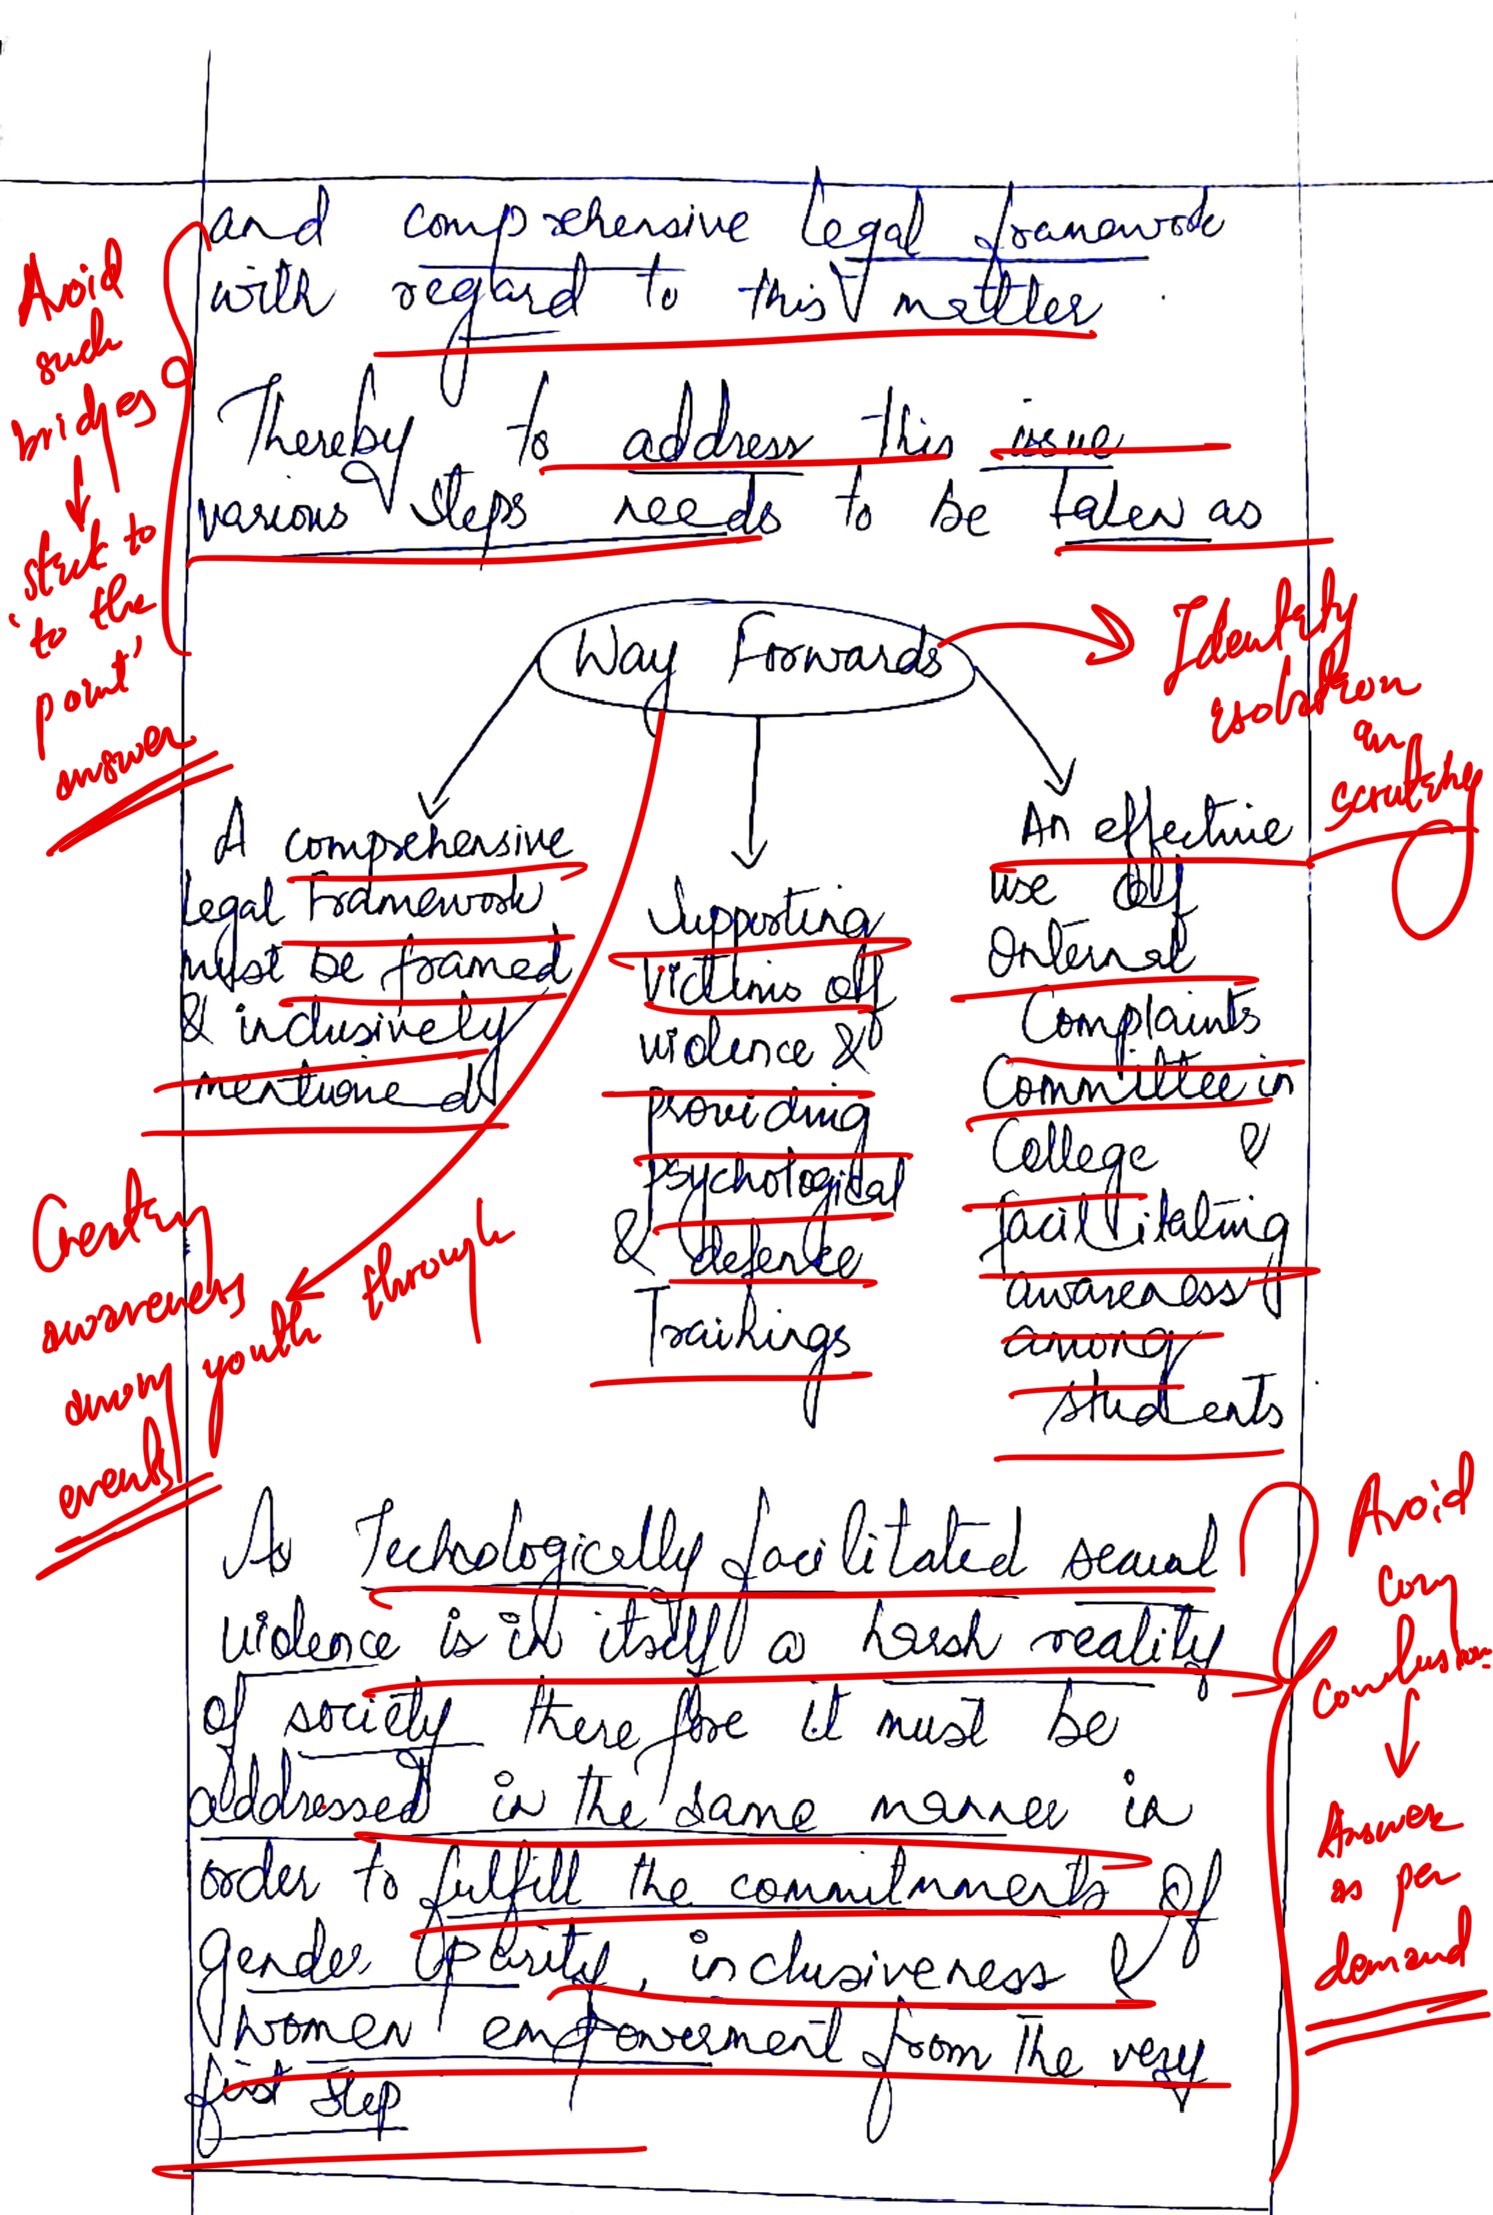 and comprehensive legal framework
with regard to this matter.
Avoid
such
bridges
stick to
'to the
point'
answer
Thereby to address this issue
various steps needs to be taken as
Way Forwards
Identity
in
A comprehensive
legal Framework
must be framed
& inclusively
mentioned
Supporting
victims off
violence &
providing
psychological
& defence
Trainings
An effective
use off
Internal
Complaints
Committee in
College &
facilitating
awareness
among
students
awareness
among youth through
events
As Technologically facilitated sexual
violence is in itself a harsh reality
of society therefore it must be
addressed in the same manner in
order to fulfill the commitmments of
gender parity, inclusiveness &
women empowerment from the very
first step
Avoid
conclusion
Answer
as per
demand